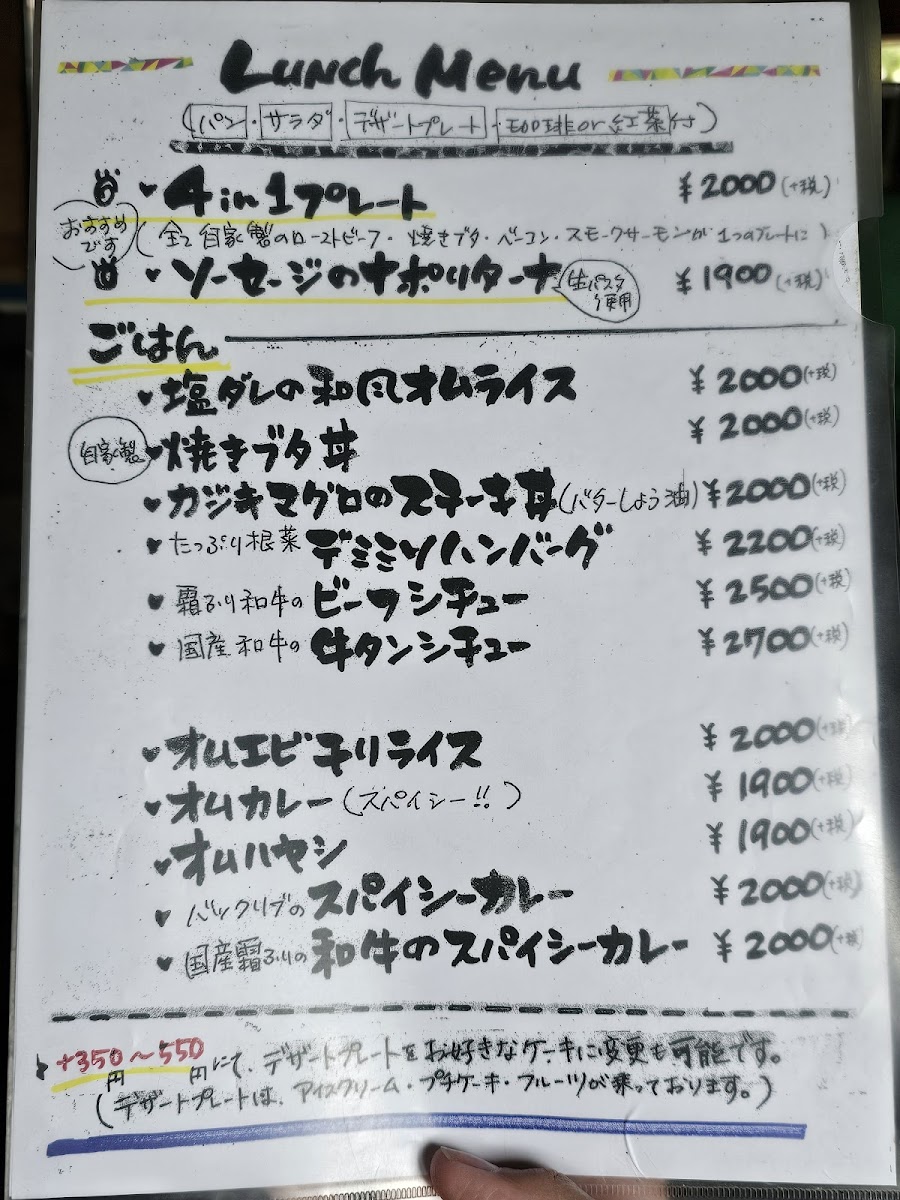 Lunch Menu
(パン・サラダ・デザートプレート・珈琲or紅茶付)
おすすめです
・4in1プレート ¥2000(+税)
(全て自家製のローストビーフ・焼きブタ・ベーコン・スモークサーモンが1つのプレートに)
・ソーセージのナポリターナ 生パスタ使用 ¥1900(+税)
ごはん
・塩ダレの和風オムライス ¥2000(+税)
自家製 ・焼きブタ丼 ¥2000(+税)
・カジキマグロのステーキ丼(バターしょう油) ¥2000(+税)
・たっぷり根菜デミミソハンバーグ ¥2200(+税)
・霜ふり和牛のビーフシチュー ¥2500(+税)
・国産和牛の牛タンシチュー ¥2700(+税)
・オムエビチリライス ¥2000(+税)
・オムカレー(スパイシー!!) ¥1900(+税)
・オムハヤシ ¥1900(+税)
・バックリブのスパイシーカレー ¥2000(+税)
・国産霜ふりの和牛のスパイシーカレー ¥2000(+税)
+350円〜550円にて、デザートプレートをお好きなケーキに変更も可能です。
(デザートプレートは、アイスクリーム・プチケーキ・フルーツが乗っております。)